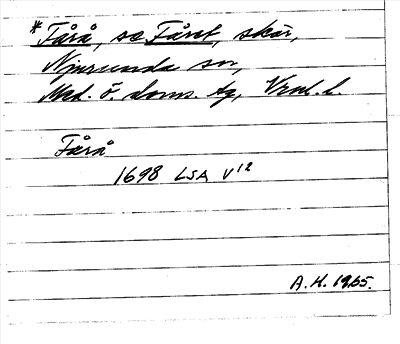 *Fårå, se Fåret, skär,
Njurunda sn,
Med. ö. doms. tg, Vrnl. l.
Fårå
1698 LSA V12
A. H. 1965.